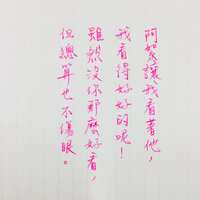 阿爸讓我看著他，
我看得好好的呢！
雖然沒你那麼好看，
但總算也不傷眼。